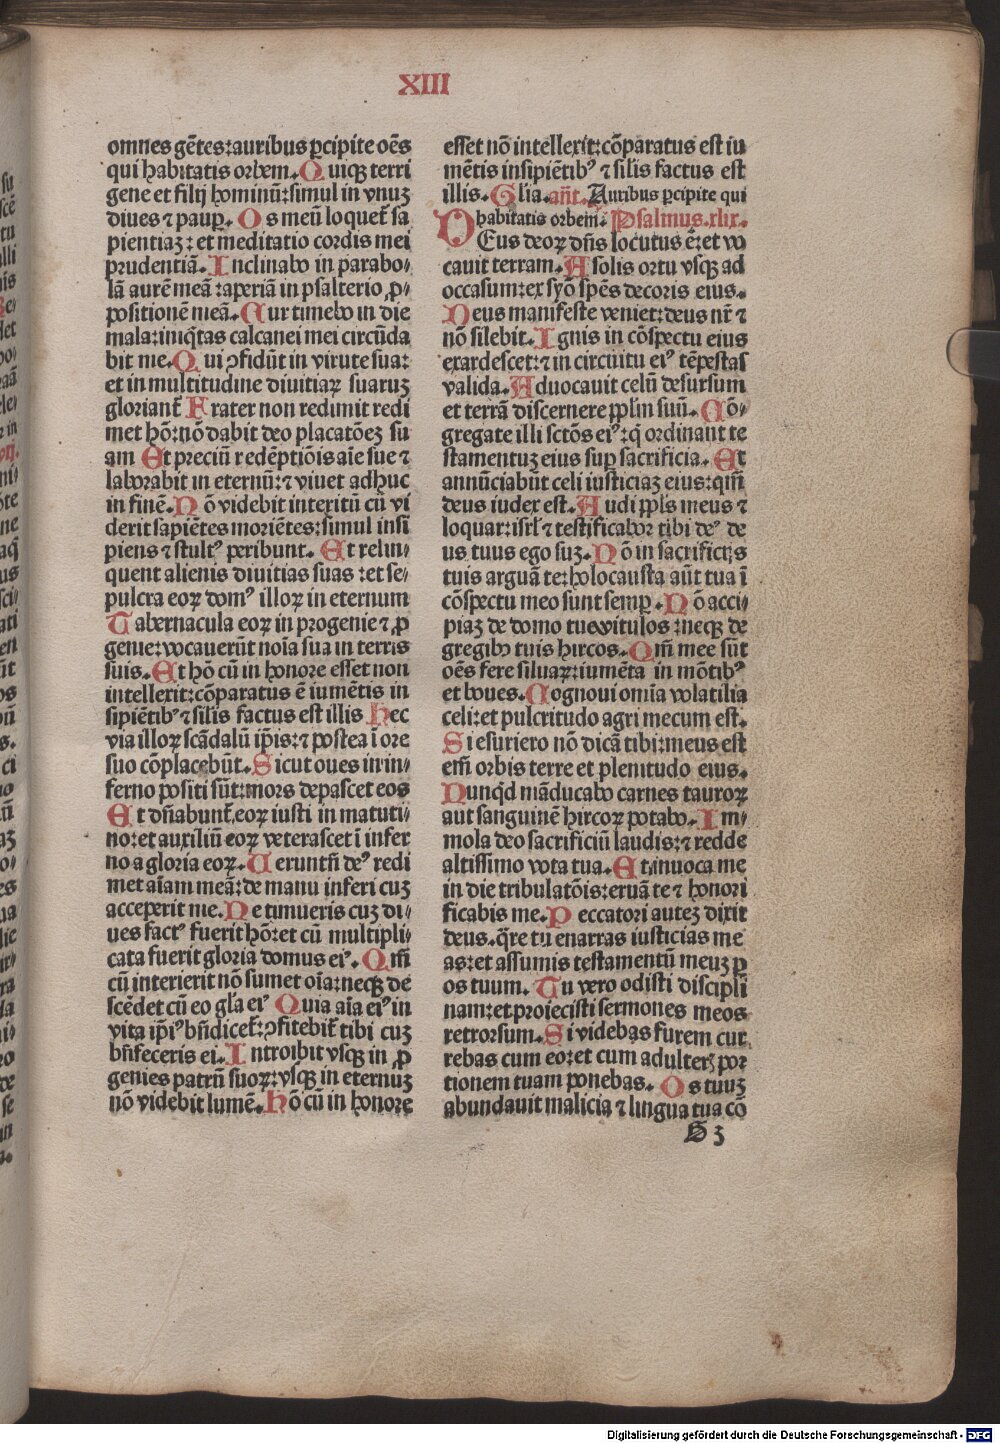 XIII
omnes gẽtes:auribus ꝑcipite oẽs
qui habitatis orbem. Quicꝫ terri
gene et filij hominũ:simul in vnuꝫ
diues ⁊ pauꝑ. Os meũ loquet̃ sa
pientiaꝫ: et meditatio cordis mei
prudentiã. Inclinabo in parabo⸗
lã aurẽ meã :aperiã in psalterio ꝓ⸗
positionẽ meã. Cur timebo in die
mala:iniq̃tas calcanei mei circũda
bit me. Qui ꝯfidũt in virute sua:
et in multitudine diuitiaꝝ suaruꝫ
gloriant̃ Frater non redimit redi
met hõ:nõ dabit deo placatõeꝫ su
am Et preciũ redẽptiõis aĩe sue ⁊
laborabit in eternũ:⁊ viuet adhuc
in finẽ. Nõ videbit interitũ cũ vi
derit sapiẽtes moriẽtes:simul insi
piens ⁊ stultꝰ peribunt. Et relin⸗
quent alienis diuitias suas :et se⸗
pulcra eoꝝ domꝰ illoꝝ in eternum
Tabernacula eoꝝ in progenie ⁊ ꝓ
genie:vocauerũt noĩa sua in terris
suis. Et hõ cũ in honore esset non
intellerit:cõparatus ẽ iumẽtis in
sipiẽtibꝰ ⁊ silis factus est illis Hec
via illoꝝ scãdalũ ip̃is:⁊ postea ĩ ore
suo cõplacebũt. Sicut oues in in⸗
ferno positi sũt:mors depascet eos
Et dñabunt̃ eoꝝ iusti in matuti⸗
no:et auxiliũ eoꝝ veterascet ĩ infer
no a gloria eoꝝ. Ueruntñ deꝰ redi
met aĩam meã:de manu inferi cuꝫ
acceperit me. Ne timueris cuꝫ di⸗
ues factꝰ fuerit hõ:et cũ multipli⸗
cata fuerit gloria domus eiꝰ. Qm̃
cũ interierit nõ sumet oĩa:necꝫ de
scẽdet cũ eo gl̃a eiꝰ Quia aĩa eiꝰ in
vita ip̃iꝰ bñdicet̃:ꝯfitebit̃ tibi cuꝫ
bñfeceris ei. Introibit vsꝗꝫ in ꝓ
genies patrũ suoꝝ:vsꝗꝫ in eternuꝫ
nõ videbit lumẽ. Hõ cũ in honore
esset nõ intellerit:cõparatus est iu
mẽtis insipiẽtibꝰ ⁊ silis factus est
illis. Glia. añt. Auribus ꝑcipite qui
habitatis orbem. Psalmus.xlix.
DEus deoꝝ dñs locutus ẽ:et vo
cauit terram. A solis ortu vsꝗꝫ ad
occasum:ex syõ spẽs decoris eius.
Deus manifeste veniet:deus nr̃ ⁊
nõ silebit. Ignis in cõspectu eius
exardescet:⁊ in circuitu eiꝰ tẽpestas
valida. Aduocauit celũ desursum
et terrã discernere ppl̃m suũ. Cõ⸗
gregate illi sctõs eiꝰ:q̃ ordinant te
stamentuꝫ eius suꝑ sacrificia. Et
annũciabũt celi iusticiaꝫ eius:qm̃
deus iudex est. Audi ppl̃s meus ⁊
loquar:isrl̃ ⁊ testificabor tibi deꝰ de
us tuus ego suꝫ. Nõ in sacrificijs
tuis arguã te:holocausta aũt tua ĩ
cõspectu meo sunt semꝑ. Nõ acci⸗
piaꝫ de domo tuo vitulos :necꝫ de
gregibꝰ tuis hircos. Qm̃ mee sũt
oẽs fere siluaꝝ:iumẽta in mõtibꝰ
et boues. Cognoui omĩa volatilia
celi:et pulcritudo agri mecum est.
Si esuriero nõ dicã tibi:meus est
em̃ orbis terre et plenitudo eius.
Nunqd̃ mãducabo carnes tauroꝝ
aut sanguinẽ hircoꝝ potabo. Im⸗
mola deo sacrificiũ laudis:⁊ redde
altissimo vota tua. Et inuoca me
in die tribulatõis:eruã te ⁊ honori
ficabis me. Peccatori auteꝫ dixit
deus.q̃re tu enarras iusticias me
as:et assumis testamentũ meuꝫ ꝑ
os tuum. Tu vero odisti discipli
nam:et proiecisti sermones meos
retrorsum. Si videbas furem cur
rebas cum eo:et cum adulterꝭ por
tionem tuam ponebas. Os tuuꝫ
abundauit malicia ⁊ lingua tua cõ
H 3
Digitalisierung gefördert durch die Deutsche Forschungsgemeinschaft - DFG